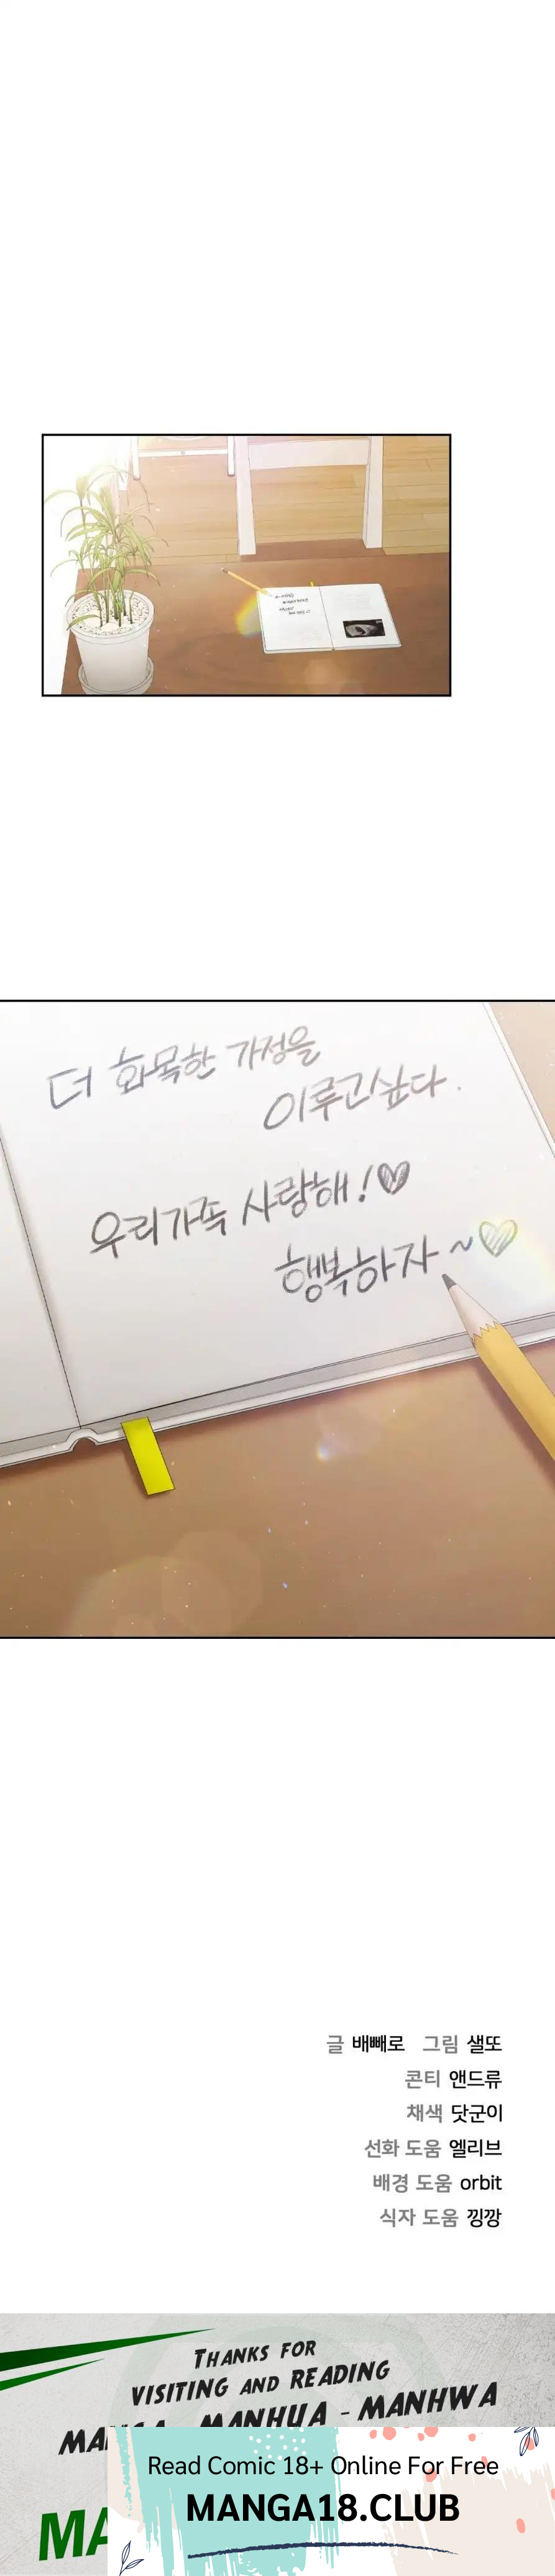 더 화목한 가정을
이루고싶다.
우리가족 사랑해!♡
행복하자~♡
글 배빼로 그림 샐또
콘티 앤드류
채색 닷군이
선화 도움 엘리브
배경 도움 orbit
식자 도움 낑깡
THANKS FOR
VISITING AND READING
MANGA - MANHUA - MANHWA
MA
Read Comic 18+ Online For Free
MANGA18.CLUB